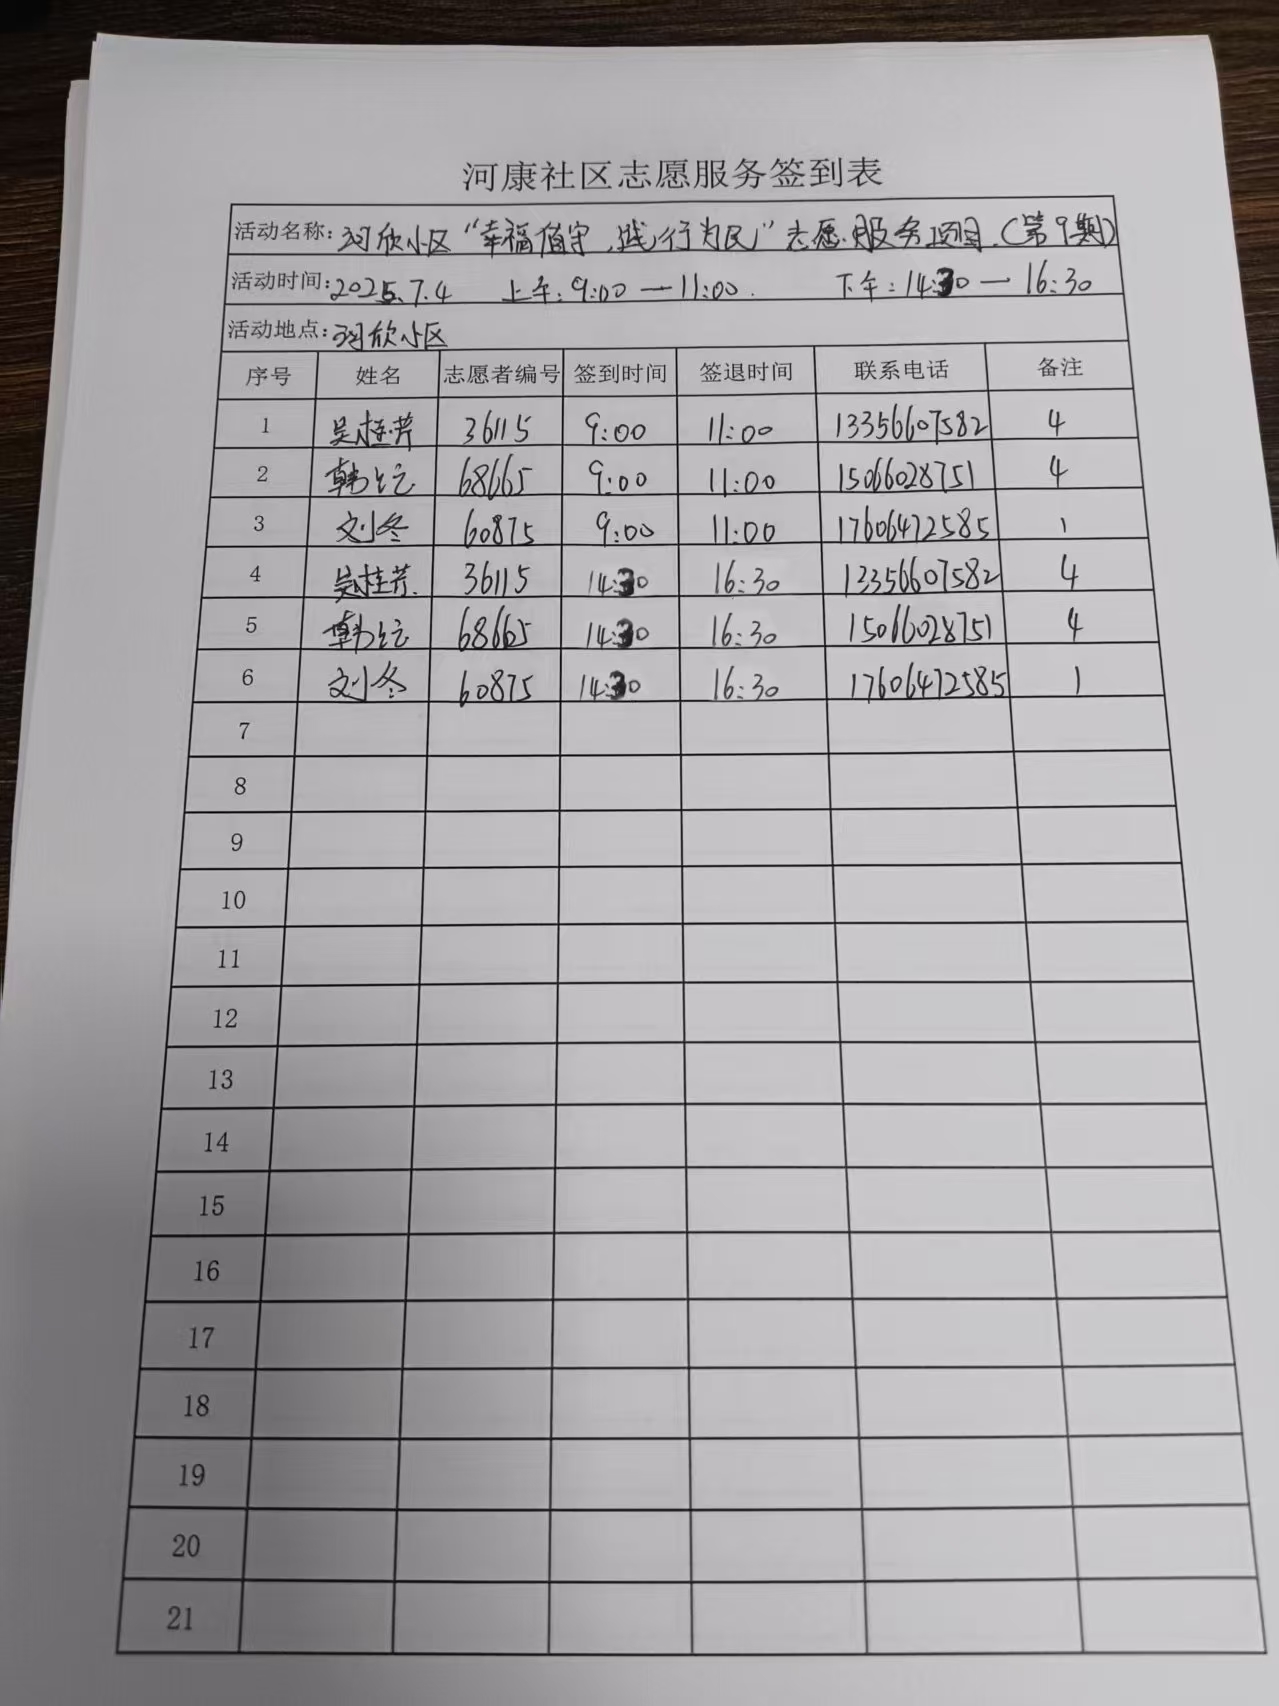 河康社区志愿服务签到表
活动名称: 河欣小区“幸福值守,践行为民”志愿服务项目.(第9期)
活动时间: 2025.7.4 上午:9:00—11:00. 下午:14:30—16:30
活动地点: 河欣小区
序号 姓名 志愿者编号 签到时间 签退时间 联系电话 备注
1 吴桂芹 36115 9:00 11:00 13356607582 4
2 韩 68665 9:00 11:00 15066028751 4
3 刘冬 60875 9:00 11:00 17606472585 1
4 吴桂芹 36115 14:30 16:30 13356607582 4
5 韩 68665 14:30 16:30 15066028751 4
6 刘冬 60875 14:30 16:30 17606472585 1
7
8
9
10
11
12
13
14
15
16
17
18
19
20
21